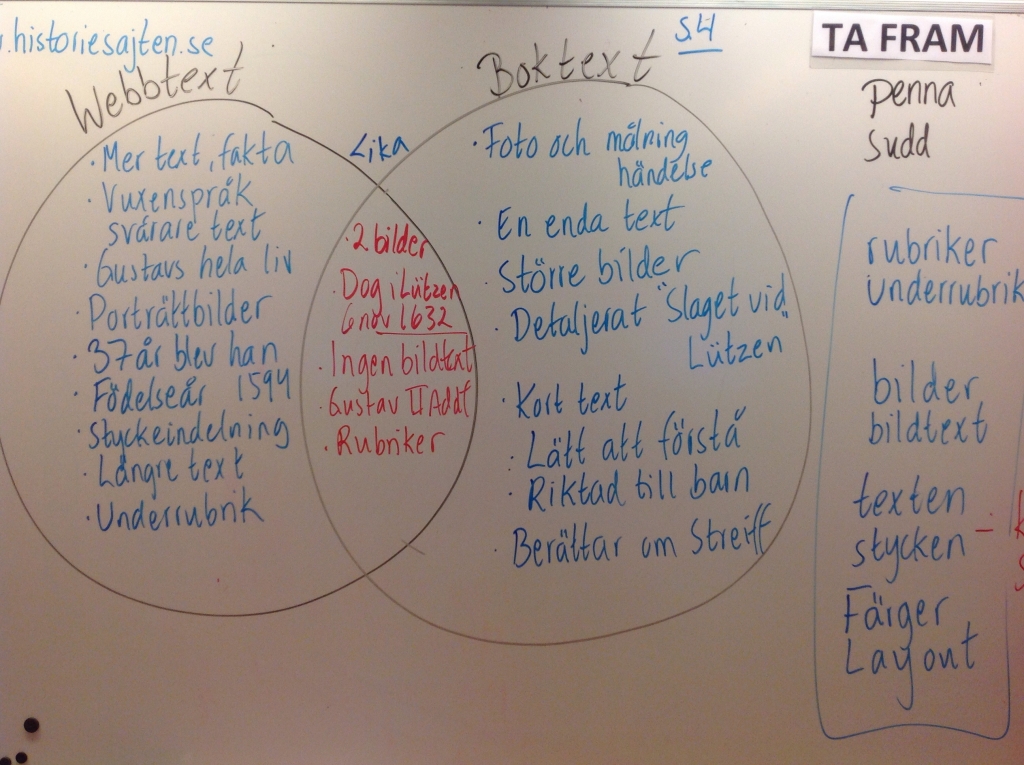 .historiesajten.se
Webbtext
· Mer text, fakta
· Vuxenspråk
svårare text
· Gustavs hela liv
· Porträttbilder
· 37 år blev han
· Födelseår 1594
· Styckeindelning
· Längre text
· Underrubrik
Lika
· 2 bilder
· Dog i Lützen
6 nov 1632
· Ingen bildtext
· Gustav II Adolf
· Rubriker
Boktext s.4
· Foto och målning
händelse
· En enda text
· Större bilder
· Detaljerat "Slaget vid
Lützen"
· Kort text
· Lätt att förstå
· Riktad till barn
· Berättar om Streiff
TA FRAM
penna
sudd
rubriker
underrubrik
bilder
bildtext
texten
stycken -
Färger
Layout